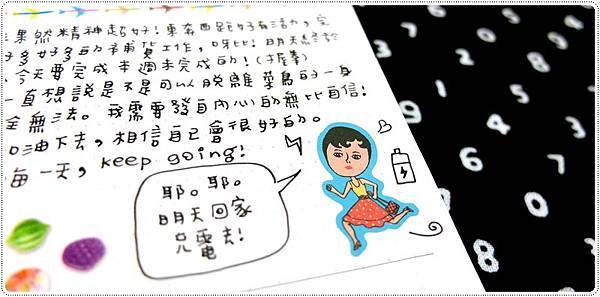 果然精神超好!東奔西跑好有活力,完
好多好多的補貨工作,呀比!明天終於
,今天要完成本週未完成的!(握拳)
一直想說是不是可以脫離菜鳥的一身
全無法。我需要發自內心的無比自信!
加油下去,相信自己會很好的。
每一天,keep going!
耶。耶。
明天回家
充電去!